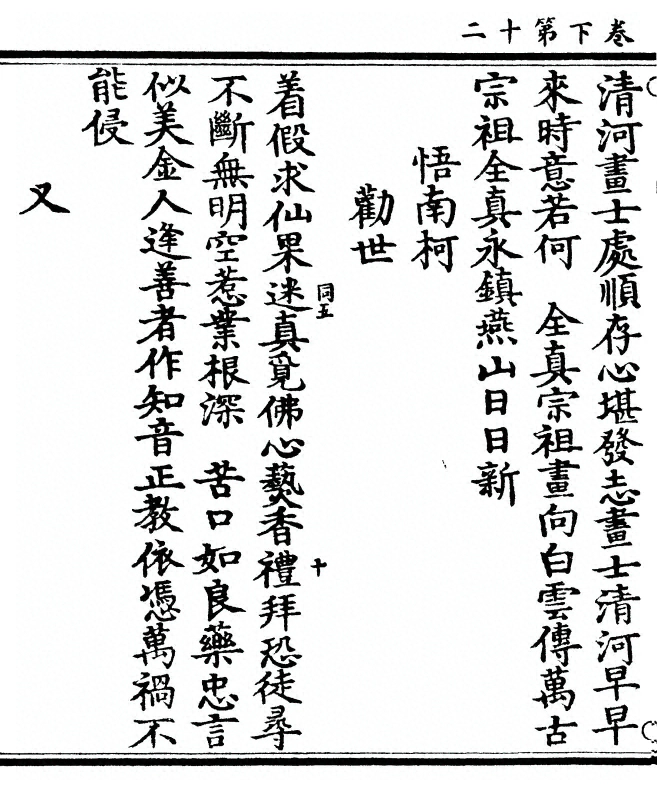 卷下第十二
清河畫士處順存心堪發志畫士清河早早
來時意若何　全真宗祖畫向白雲傳萬古
宗祖全真永鎮燕山日日新
悟南柯
勸世
同五
十
着假求仙果迷真覓佛心爇香禮拜恐徒尋
不斷無明空惹業根深　苦口如良藥忠言
似美金人逢善者作知音正教依憑萬禍不
能侵
又